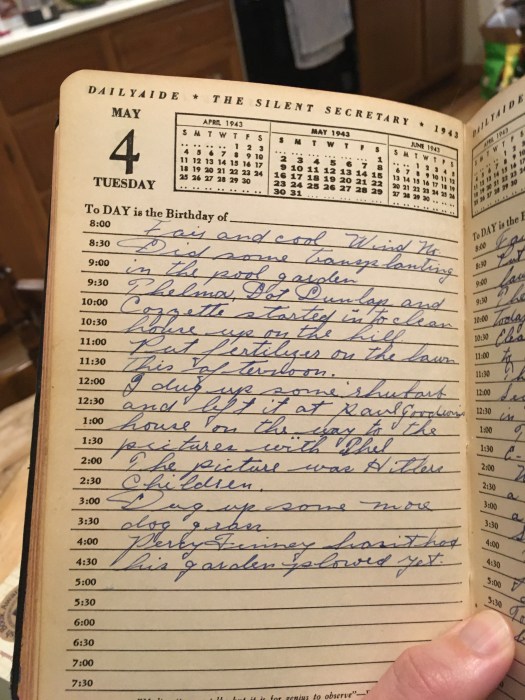 DAILYAIDE ★ THE SILENT SECRETARY ★ 1943
MAY
4
TUESDAY
APRIL 1943
S M T W T F S
1 2 3
4 5 6 7 8 9 10
11 12 13 14 15 16 17
18 19 20 21 22 23 24
25 26 27 28 29 30
MAY 1943
S M T W T F S
1
2 3 4 5 6 7 8
9 10 11 12 13 14 15
16 17 18 19 20 21 22
23 24 25 26 27 28 29
30 31
JUNE 1943
S M T W T F S
1 2 3 4 5
6 7 8 9 10 11 12
13 14 15 16 17 18 19
20 21 22 23 24 25 26
27 28 29 30
To DAY is the Birthday of
8:00 Fair and cool Wind No.
8:30 Did some transplanting
9:00 in the pool garden
9:30 Thelma, Dot Dunlap and
10:00 Cozzette started in to clean
10:30 house up on the hill
11:00 Put fertilizer on the lawn
11:30 this afternoon.
12:00 I dug up some rhubarb
12:30 and left it at Paul Goodwins
1:00 house on the way to the
1:30 pictures with Phel
2:00 The picture was Hitlers
2:30 Children.
3:00 Dug up some more
3:30 dog grass
4:00 Percy Finney hasn't had
4:30 his garden plowed yet.
5:00
5:30
6:00
6:30
7:00
7:30
it is for genius to observe"
DAILYAIDE
To DAY is the
8:00
8:30
9:00
9:30
10:00
10:30
11:00
11:30
12:00
12:30
1:00
1:30
2:00
2:30
3:00
3:30
4:00
4:30
5:00
5:30